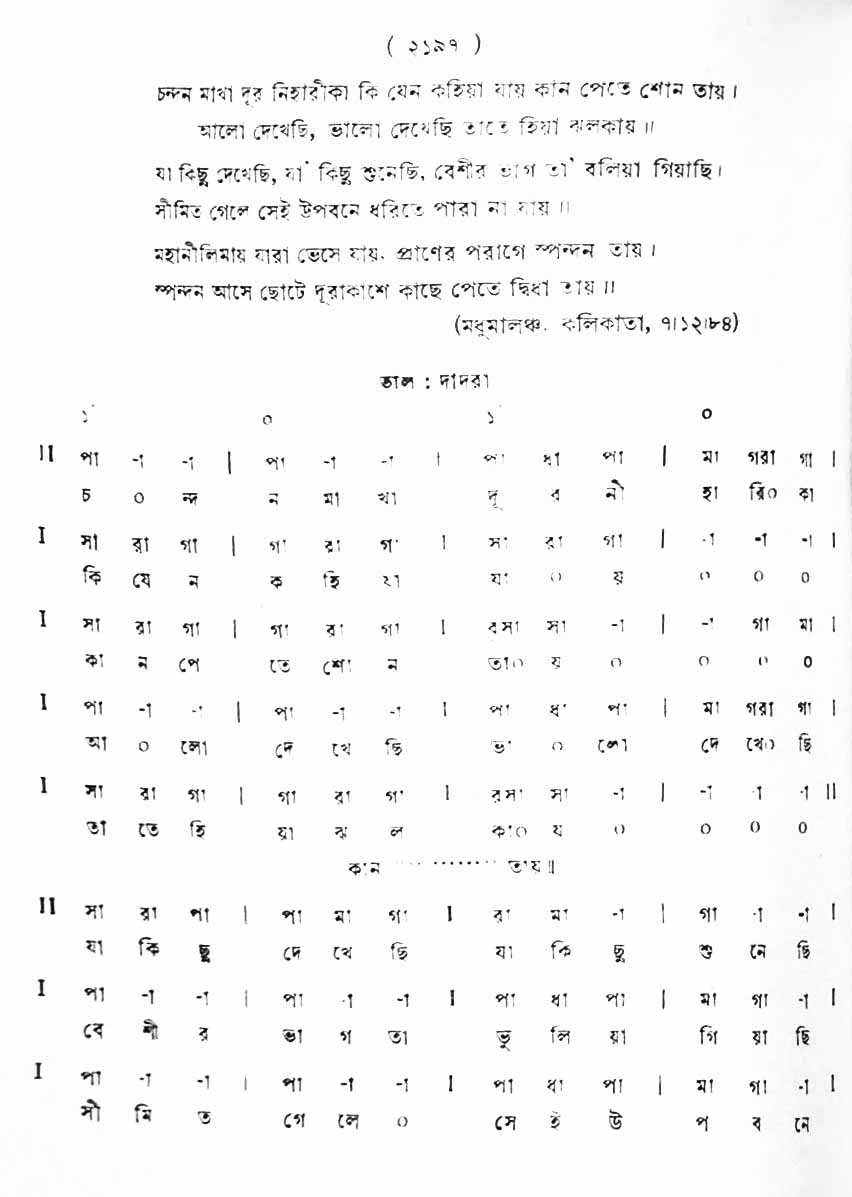 ( ২১৯৭ )
চন্দন মাখা দূর নিহারীকা কি যেন কহিয়া যায় কান পেতে শোন তায়।
আলো দেখেছি, ভালো দেখেছি তাতে হিয়া ঝলকায়॥
যা কিছু দেখেছি, যা' কিছু শুনেছি, বেশীর ভাগ তা' বলিয়া গিয়াছি।
সীমিত গেলে সেই উপবনে ধরিতে পারা না যায়॥
মহানীলিমায় যারা ভেসে যায়. প্রাণের পরাগে স্পন্দন তায়।
স্পন্দন আসে ছোটে দূরাকাশে কাছে পেতে দ্বিধা তায়॥
(মধুমালঞ্চ. কলিকাতা, ৭।১২।৮৪)
তাল : দাদরা
১́ ০ ১́ ০
II পা -া -া | পা -া -া । পা ধা পা | মা গরা গা ।
চ ০ ন্দ ন মা খা দূ র নী হা রি০ কা
I সা রা গা | গা রা গা । সা রা গা | -া -া -া ।
কি যে ন ক হি য়া যা ০ য় ০ ০ ০
I সা রা গা | গা রা গা । রসা সা -া | -া গা মা ।
কা ন পে তে শো ন তা০ য় ০ ০ ০ ০
I পা -া -া | পা -া -া । পা ধা পা | মা গরা গা ।
আ ০ লো দে খে ছি ভা ০ লো দে খে০ ছি
I সা রা গা | গা রা গা । রসা সা -া | -া -া -া II
তা তে হি য়া ঝ ল কা০ য ০ ০ ০ ০
কান ············ তায়॥
II সা রা পা | পা মা গা I রা মা -া | গা -া -া ।
যা কি ছু দে খে ছি যা কি ছু শু নে ছি
I পা -া -া | পা -া -া I পা ধা পা | মা গা -া ।
বে শী র ভা গ তা ভু লি য়া গি য়া ছি
I পা -া -া | পা -া -া I পা ধা পা | মা গা -া ।
সী মি ত গে লে ০ সে ই উ প ব নে